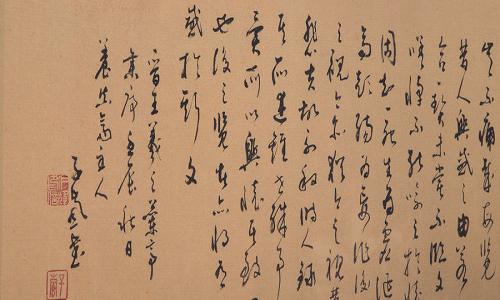 豈不痛哉每覽
昔人興感之由若
合一契未嘗不臨文
嗟悼不能喻之於懷
固知一死生為虛誕
齊彭殤為妄作後
之視今亦猶今之視昔
悲夫故列敘時人錄
其所述雖世殊事
異所以興懷其致
也後之覽者亦將有
感於斯文
晉王羲之蘭亭
集序壬辰秋日
養真齋主人
書